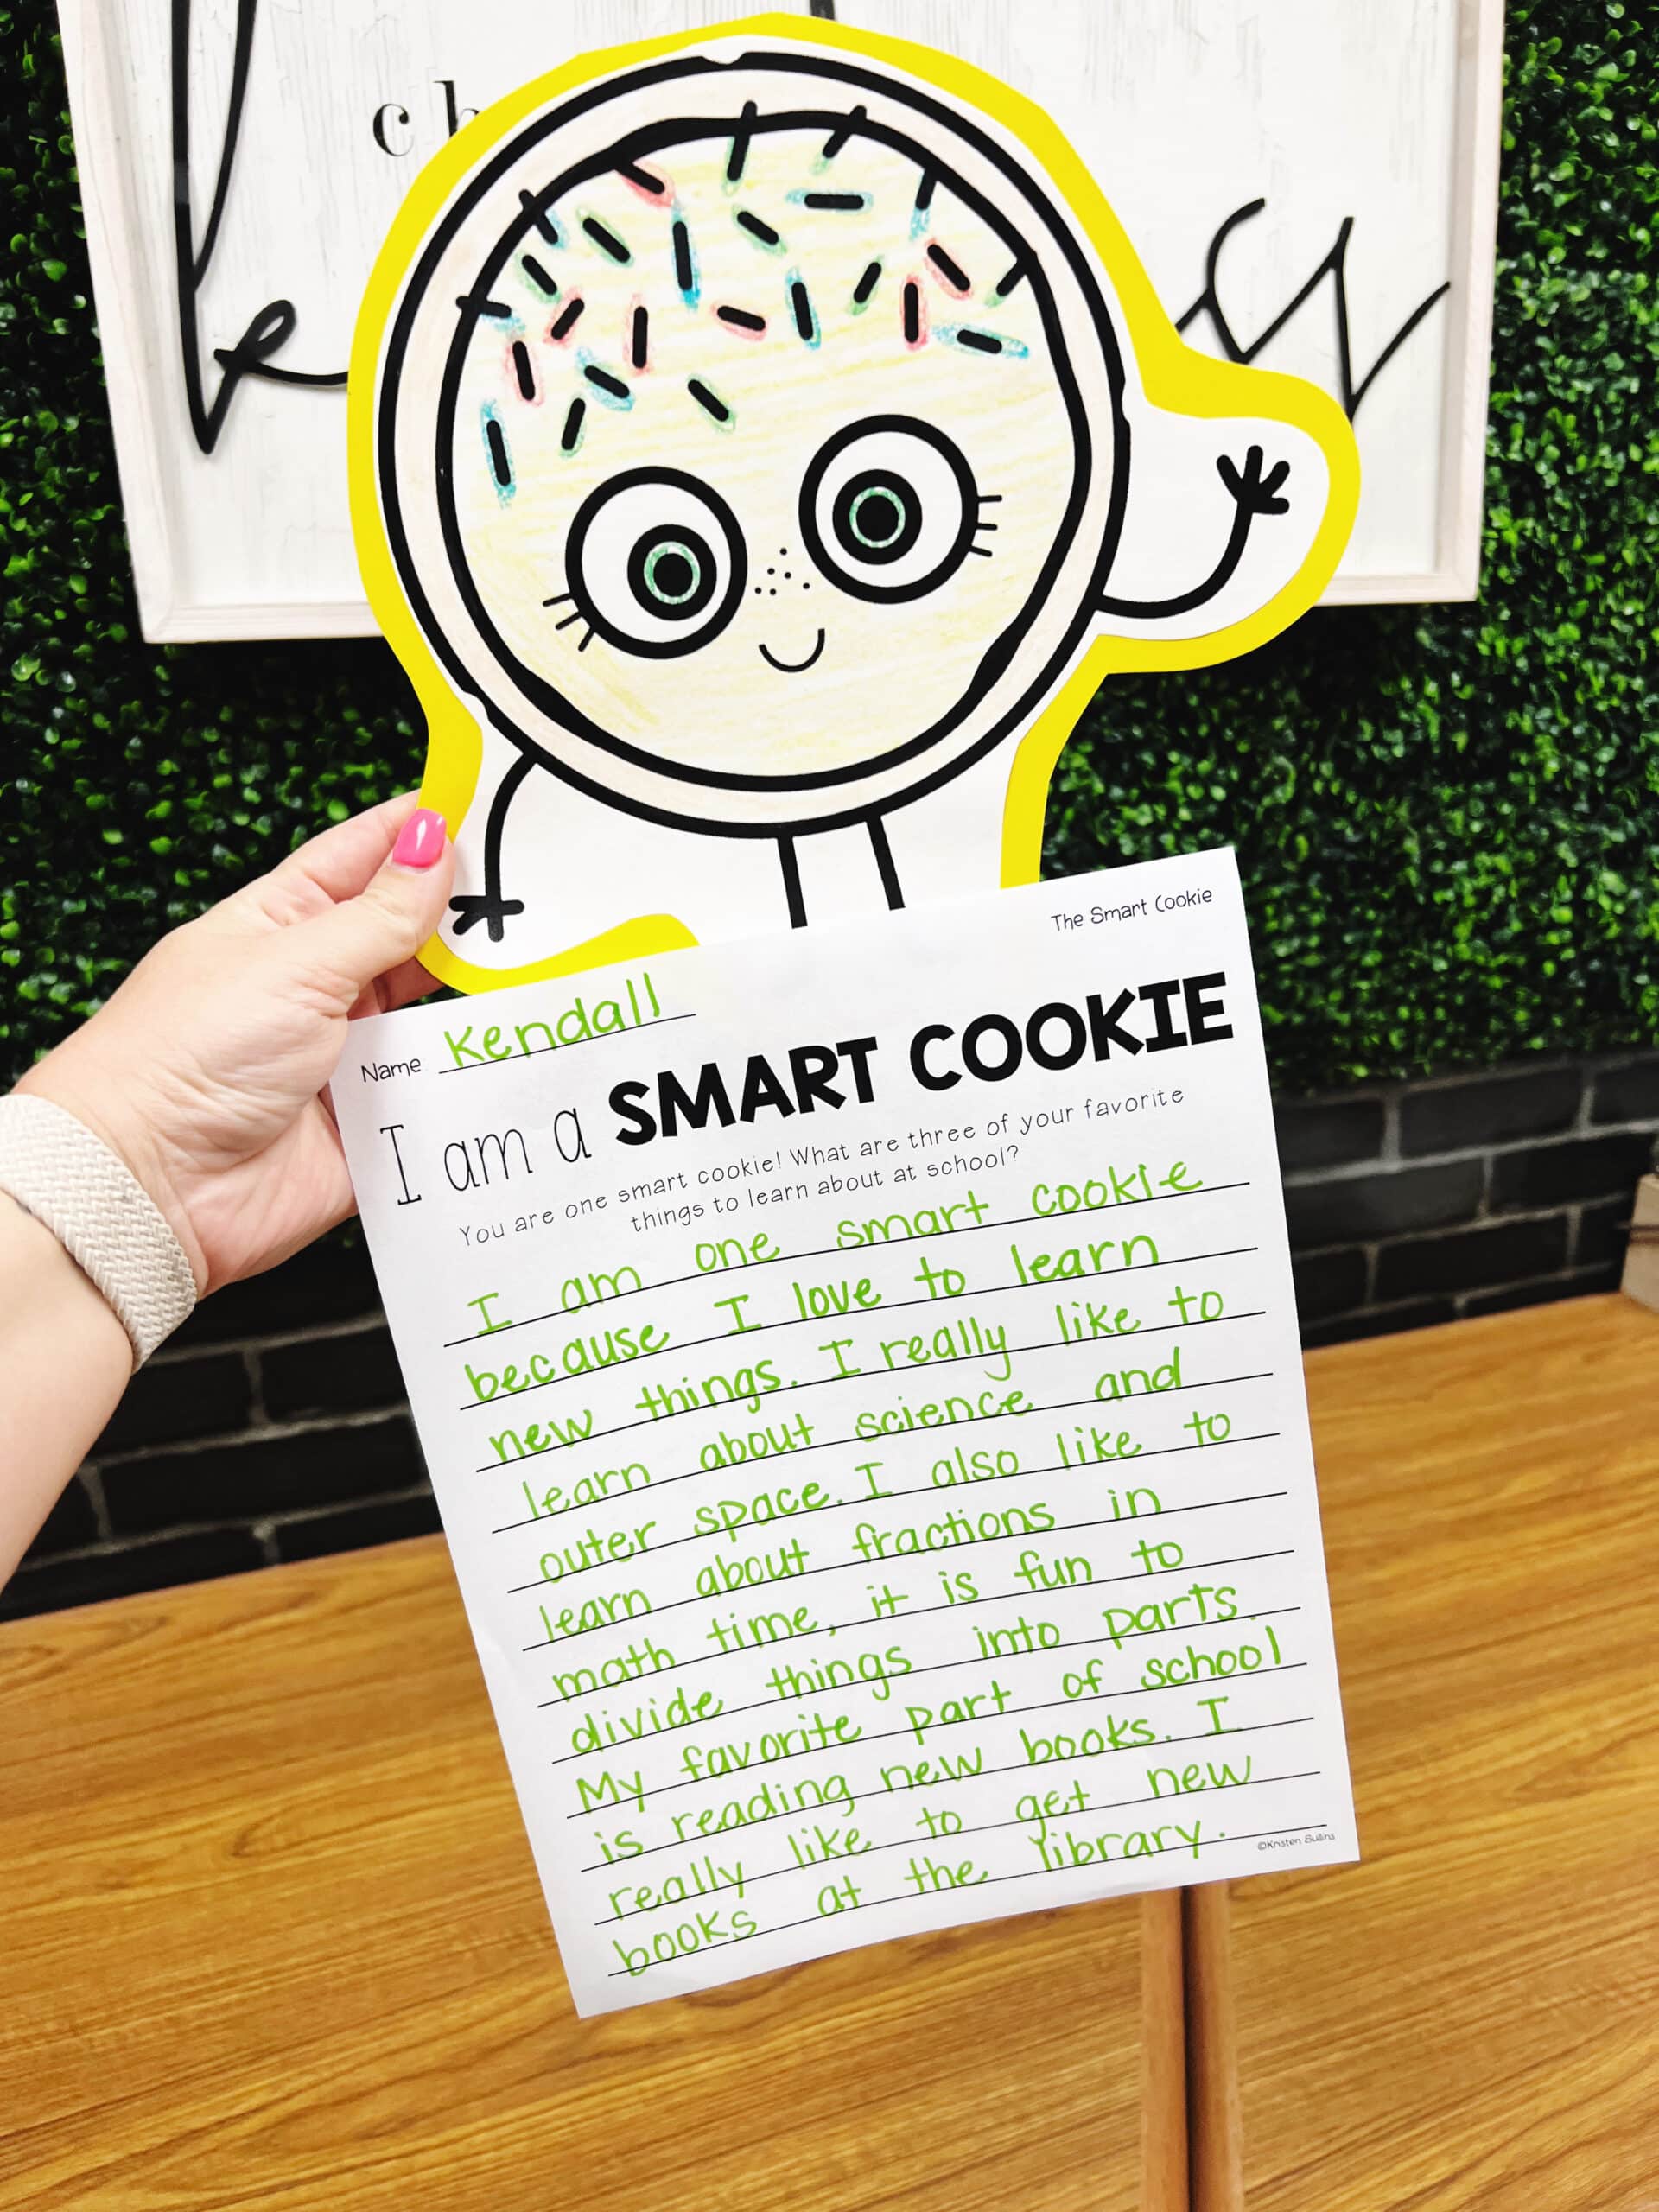 ch
The Smart Cookie
Name Kendall
I am a SMART COOKIE
You are one smart cookie! What are three of your favorite
things to learn about at school?
I am one smart cookie
because I love to learn
new things. I really like to
learn about science and
outer space. I also like to
learn about fractions in
math time, it is fun to
divide things into parts.
My favorite part of school
is reading new books. I
really like to get new
books at the library.
©Kristen Sullins